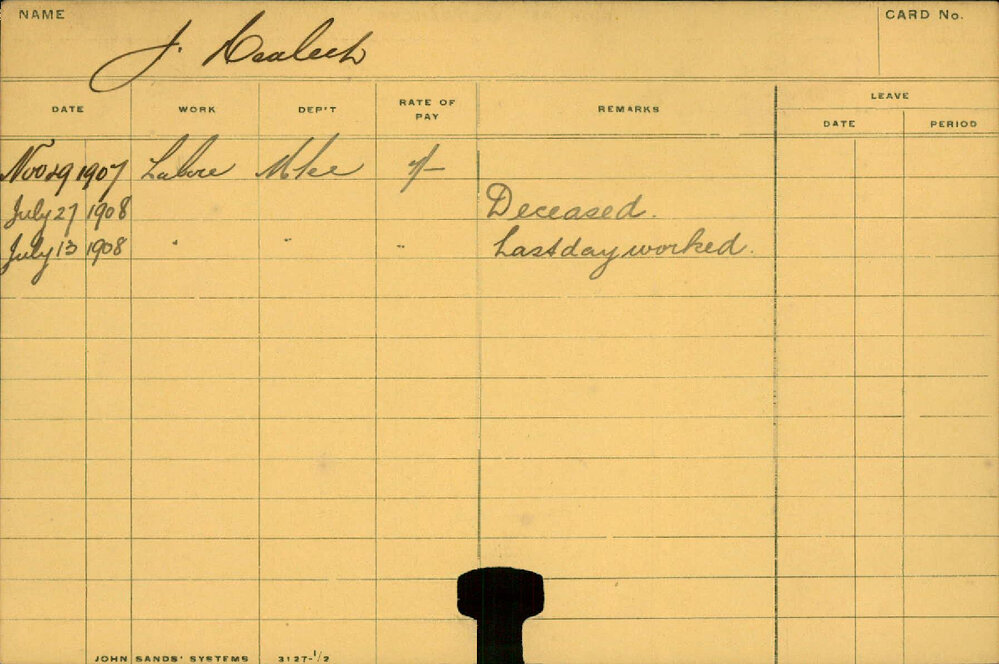 NAME
J.
CARD No.
DATE WORK DEP'T RATE OF PAY REMARKS LEAVE
DATE PERIOD
Nov 29 1907 7/-
July 27 1908 Deceased.
July 13 1908 " " " Last day worked.
JOHN SANDS' SYSTEMS 3127-1/2